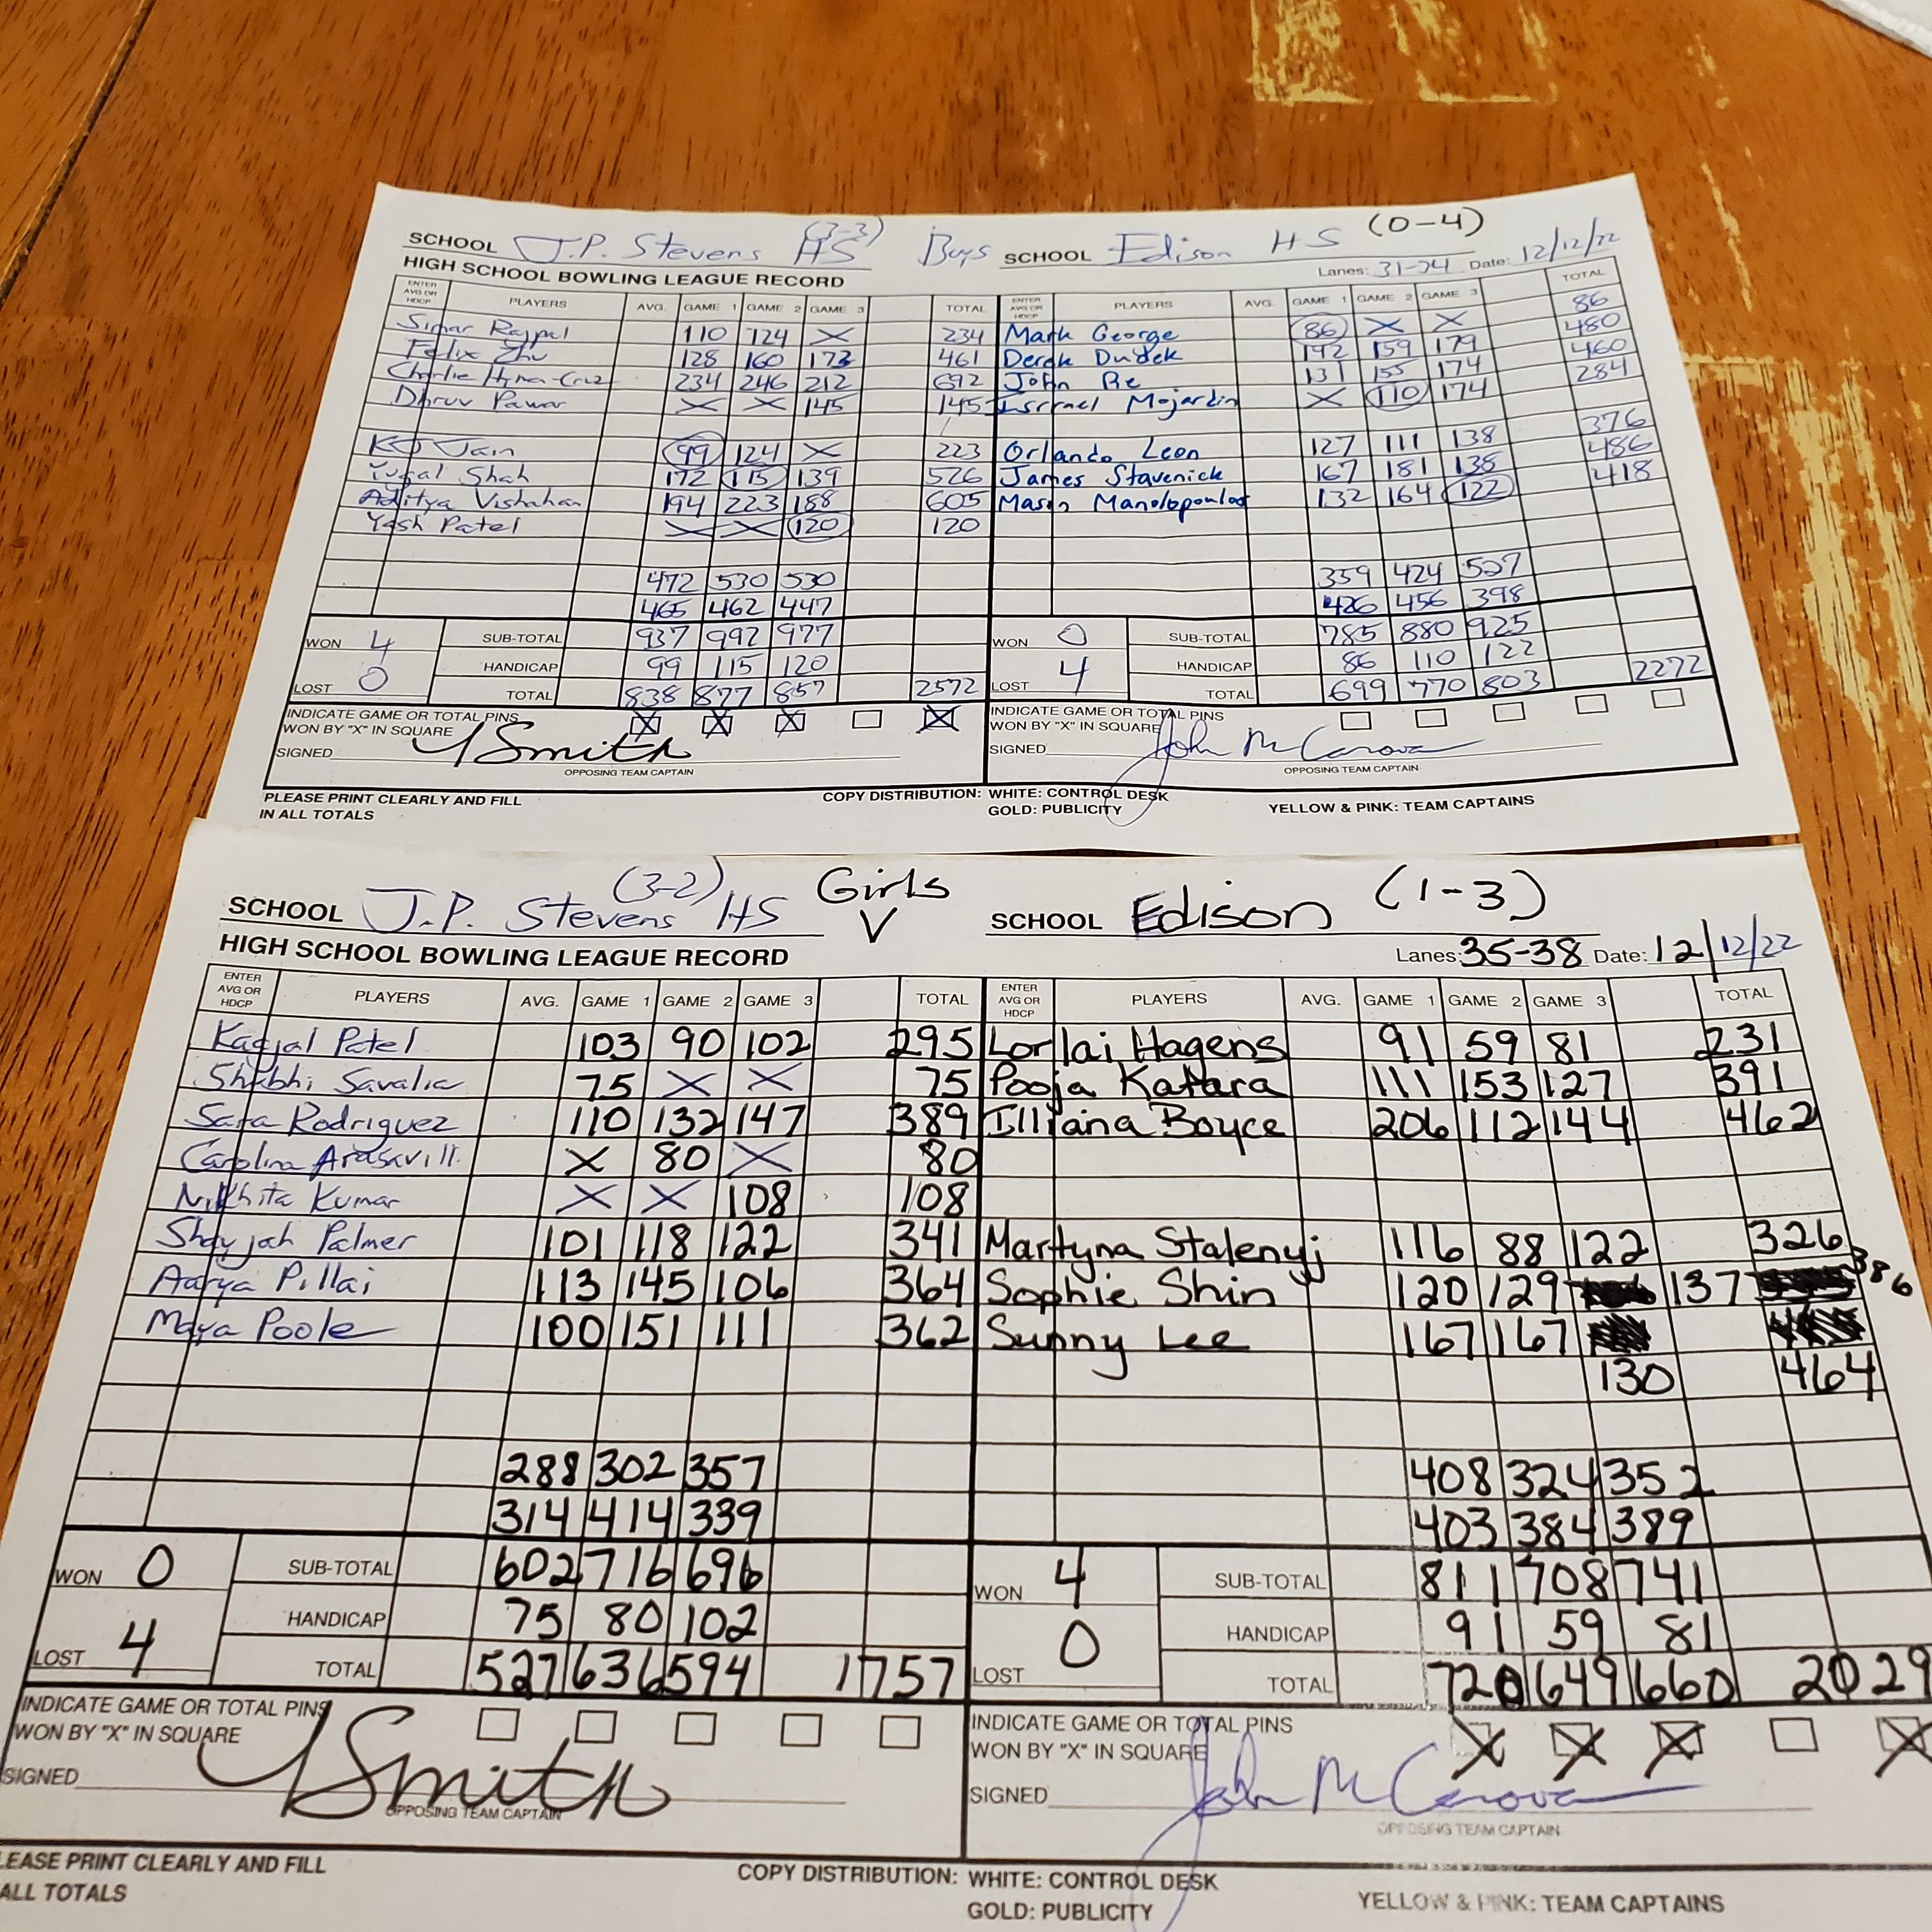 SCHOOL J.P. Stevens HS (3-3) Boys SCHOOL Edison HS (0-4)
HIGH SCHOOL BOWLING LEAGUE RECORD Lanes: 31-34 Date: 12/12/22
ENTER AVG OR HDCP PLAYERS AVG. GAME 1 GAME 2 GAME 3 TOTAL ENTER AVG OR HDCP PLAYERS AVG. GAME 1 GAME 2 GAME 3 TOTAL
Simar Rajpal 110 124 X 234 Mark George 86 X X 86
Felix Zhu 128 160 173 461 Derek Dudek 142 159 179 480
Charlie Hyman-Cruz 234 246 212 692 John Re 131 155 174 460
Dhruv Pawar X X 145 145 Isrrael Mojardin X 110 174 284
KJ Jain 99 124 X 223 Orlando Leon 127 111 138 376
Yugal Shah 172 115 139 526 James Stavenick 167 181 138 486
Aditya Vishahan 194 223 188 605 Mason Manolopoulos 132 164 122 418
Yash Patel X X 120 120
472 530 530 359 424 527
465 462 447 426 456 398
WON 4 SUB-TOTAL 937 992 977 WON 0 SUB-TOTAL 785 880 925
HANDICAP 99 115 120 HANDICAP 86 110 122
LOST 0 TOTAL 838 877 857 2572 LOST 4 TOTAL 699 770 803 2272
INDICATE GAME OR TOTAL PINS X X X X INDICATE GAME OR TOTAL PINS
WON BY "X" IN SQUARE WON BY "X" IN SQUARE
SIGNED Y Smith SIGNED John M
OPPOSING TEAM CAPTAIN OPPOSING TEAM CAPTAIN
PLEASE PRINT CLEARLY AND FILL COPY DISTRIBUTION: WHITE: CONTROL DESK YELLOW & PINK: TEAM CAPTAINS
IN ALL TOTALS GOLD: PUBLICITY
SCHOOL J.P. Stevens HS (3-2) Girls V SCHOOL Edison (1-3)
HIGH SCHOOL BOWLING LEAGUE RECORD Lanes: 35-38 Date: 12/12/22
ENTER AVG OR HDCP PLAYERS AVG. GAME 1 GAME 2 GAME 3 TOTAL ENTER AVG OR HDCP PLAYERS AVG. GAME 1 GAME 2 GAME 3 TOTAL
Kagjal Patel 103 90 102 295 Lorlai Hagens 91 59 81 231
Shubhi Savalia 75 X X 75 Pooja Katara 111 153 127 391
Sara Rodriguez 110 132 147 389 Illiana Boyce 206 112 144 462
Carolina X 80 X 80
Nikhita Kumar X X 108 108
Shayjah Palmer 101 118 122 341 Martyna Stalenyj 116 88 122 326
Aarya Pillai 113 145 106 364 Sophie Shin 120 129 137 386
Maya Poole 100 151 111 362 Sunny Lee 167 167
130 464
288 302 357 408 324 352
314 414 339 403 384 389
WON 0 SUB-TOTAL 602 716 696 WON 4 SUB-TOTAL 811 708 741
HANDICAP 75 80 102 HANDICAP 91 59 81
LOST 4 TOTAL 527 636 594 1757 LOST 0 TOTAL 720 649 660 2029
INDICATE GAME OR TOTAL PINS INDICATE GAME OR TOTAL PINS X X X X
WON BY "X" IN SQUARE WON BY "X" IN SQUARE
SIGNED Y Smith SIGNED John M
OPPOSING TEAM CAPTAIN OPPOSING TEAM CAPTAIN
LEASE PRINT CLEARLY AND FILL COPY DISTRIBUTION: WHITE: CONTROL DESK YELLOW & PINK: TEAM CAPTAINS
ALL TOTALS GOLD: PUBLICITY